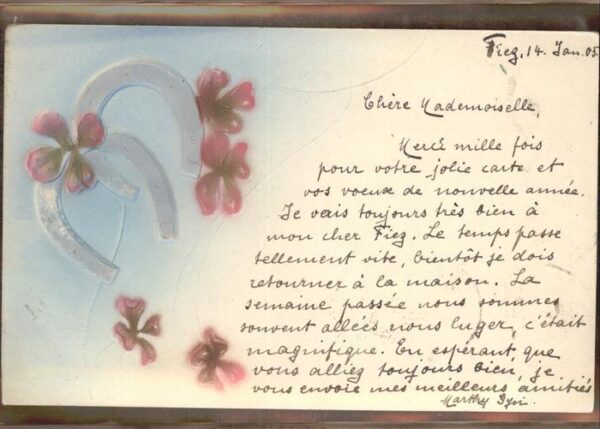 Fiez, 14. Jan. 05.
Chère Mademoiselle,
Merci mille fois
pour votre jolie carte et
vos voeux de nouvelle année.
Je vais toujours très bien à
mon cher Fiez. Le temps passe
tellement vite, bientôt je dois
retourner à la maison. La
semaine passée nous sommes
souvent allées nous luger, c'était
magnifique. En espérant, que
vous alliez toujours bien, je
vous envoie mes meilleurs amitiés
Marthy